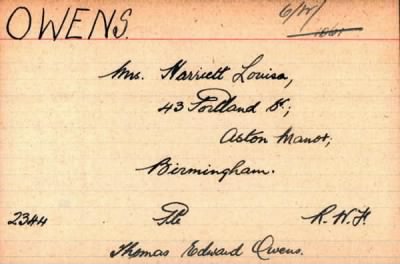 OWENS.
Mrs. Harriett Louisa,
43 Portland St.;
Aston Manor;
Birmingham.
2344 Pte R.W.F.
Thomas Edward Owens.